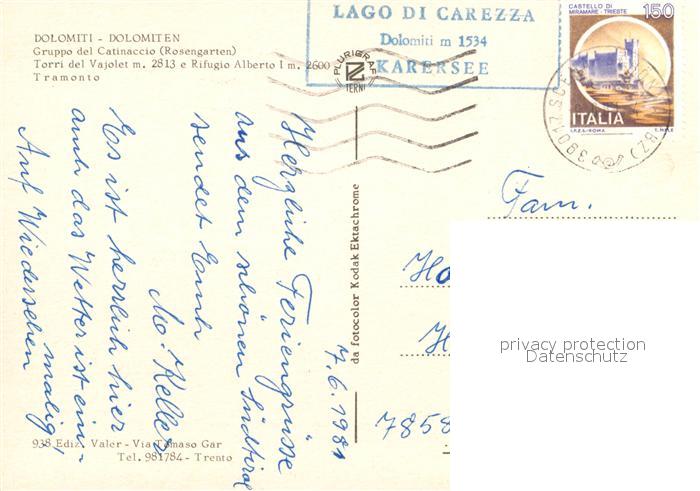 DOLOMITI - DOLOMITEN
Gruppo del Catinaccio (Rosengarten)
Torri del Vajolet m. 2813 e Rifugio Alberto I m. 2600
Tramonto
LAGO DI CAREZZA
Dolomiti m 1534
KARERSEE
PLURIGRAF
TERNI
CASTELLO DI
MIRAMARE - TRIESTE
150
ITALIA
I.P.Z.S.-ROMA
39017
(BZ)
7.6.1981
Herzliche Feriengrüsse
aus dem schönen Südtirol
sendet Euch
M. Keller
Es ist herrlich hier
auch das Wetter ist ein-
malig,
Auf Wiedersehen
da fotocolor Kodak Ektachrome
Fam.
Ho
H
7858
privacy protection
Datenschutz
938 Ediz. Valer - Via Tomaso Gar
Tel. 981784 - Trento